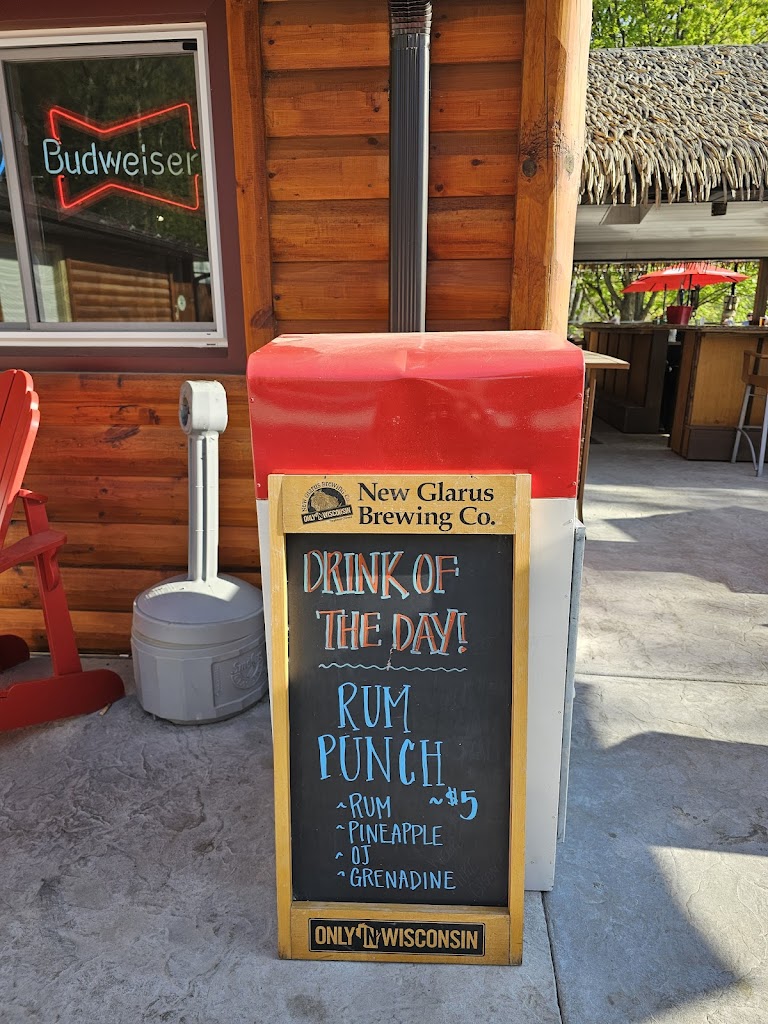 Budweiser
NEW GLARUS BREWING CO.
ONLY IN WISCONSIN
New Glarus
Brewing Co.
DRINK OF
THE DAY!
RUM
PUNCH
~RUM ~$5
~PINEAPPLE
~OJ
~GRENADINE
ONLY IN WISCONSIN